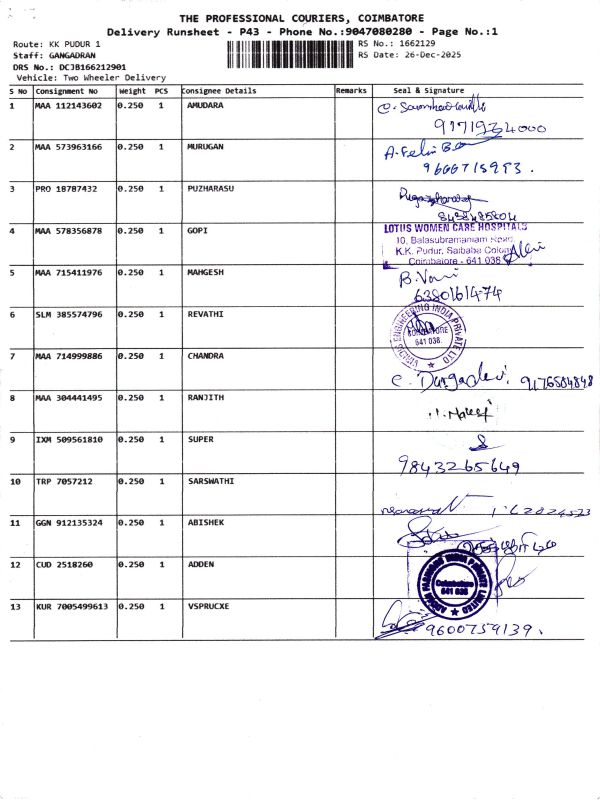 THE PROFESSIONAL COURIERS, COIMBATORE
Delivery Runsheet - P43 - Phone No.:9047080280 - Page No.:1
Route: KK PUDUR 1 RS No.: 1662129
Staff: GANGADRAN RS Date: 26-Dec-2025
DRS No.: DCJB166212901
Vehicle: Two Wheeler Delivery
S No Consignment No Weight PCS Consignee Details Remarks Seal & Signature
1 MAA 112143602 0.250 1 AMUDARA
2 MAA 573963166 0.250 1 MURUGAN A. Felix
9600715293.
3 PRO 18787432 0.250 1 PUZHARASU
4 MAA 578356878 0.250 1 GOPI LOTUS WOMEN CARE HOSPITALS
10, Balasubramaniam Road,
K.K. Pudur, Saibaba Colony
Coimbatore - 641 038
5 MAA 715411976 0.250 1 MAHGESH B. Vani
6380161474
6 SLM 385574796 0.250 1 REVATHI ENGINEERING INDIA PRIVATE LTD
COIMBATORE
641 038.
7 MAA 714999886 0.250 1 CHANDRA C. Durgadevi. 9176584848
8 MAA 304441495 0.250 1 RANJITH
9 IXM 509561810 0.250 1 SUPER
9843265649
10 TRP 7057212 0.250 1 SARSWATHI
11 GGN 912135324 0.250 1 ABISHEK
12 CUD 2518260 0.250 1 ADDEN FASHIONS INDIA PRIVATE LIMITED
Coimbatore
641 038
13 KUR 7005499613 0.250 1 VSPRUCXE 9600759139.